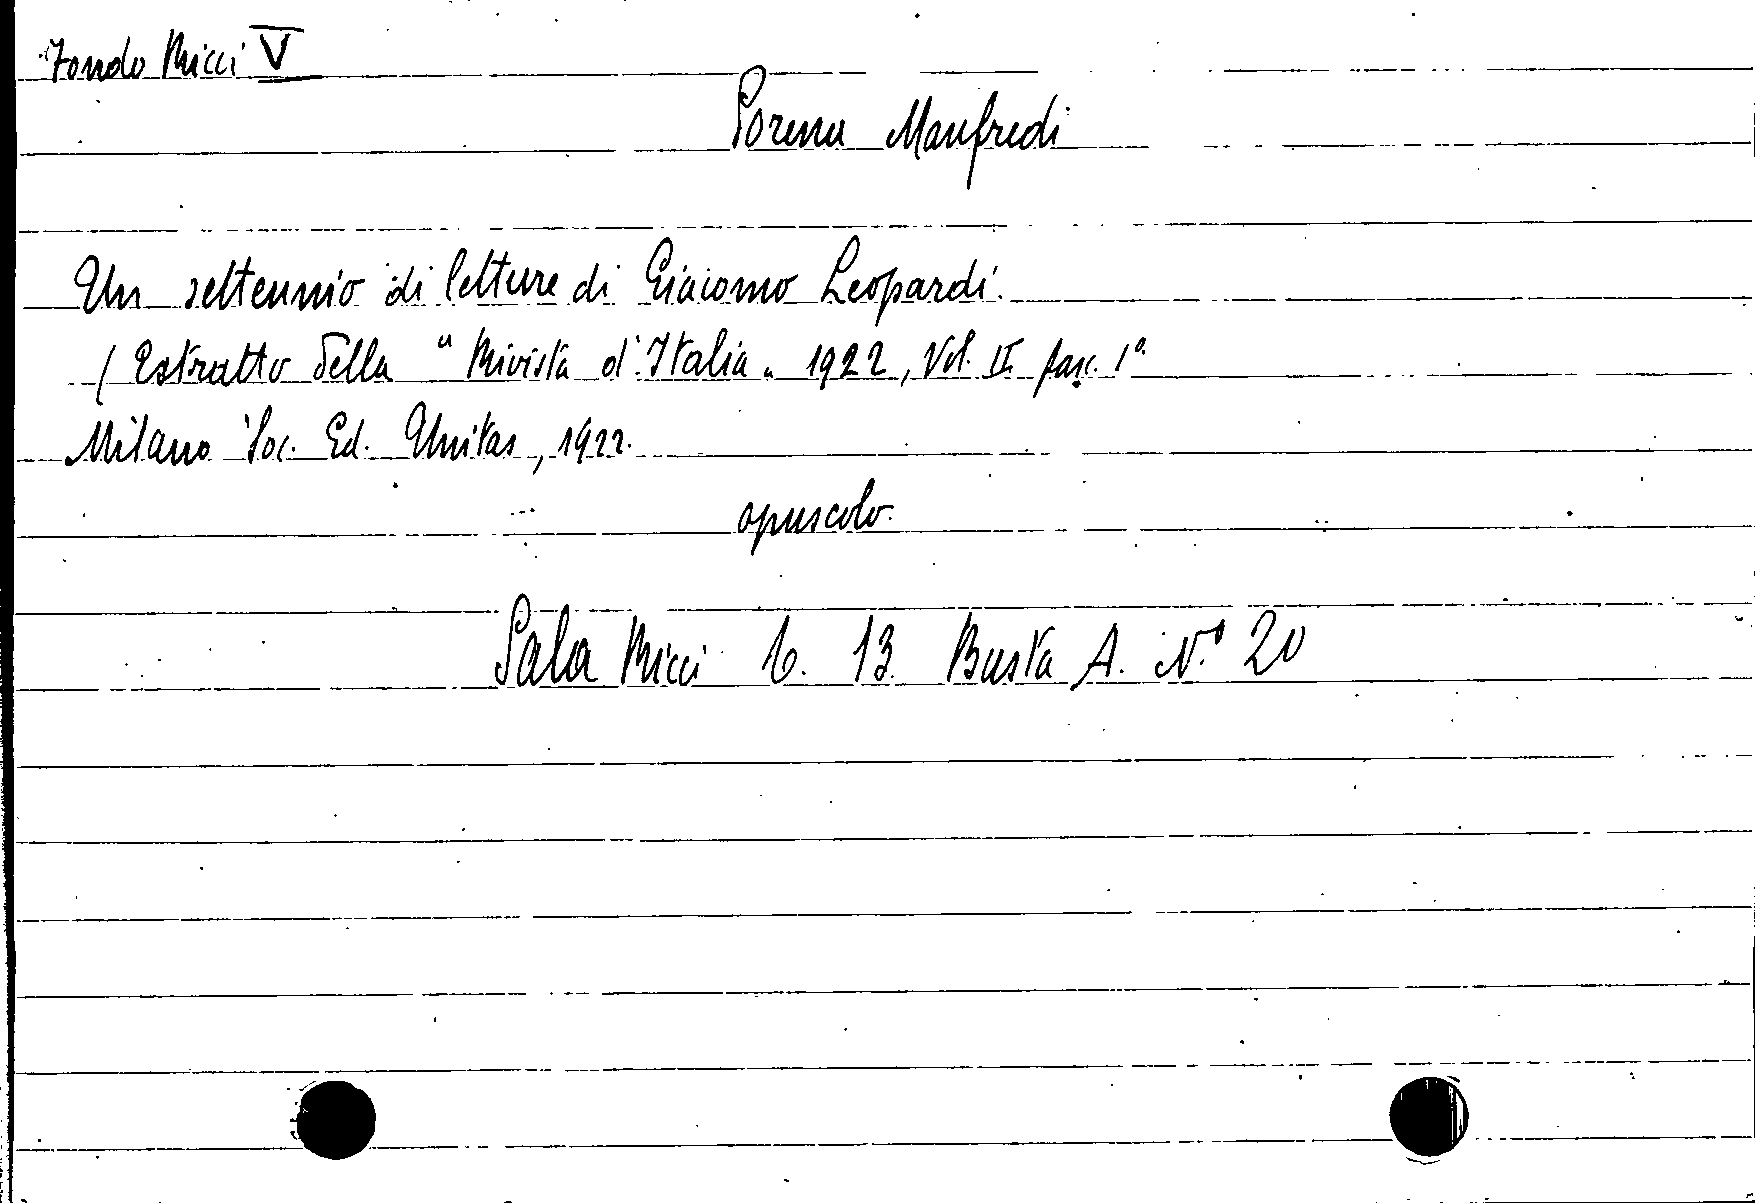 Fondo Ricci V
Porena Manfredi
Un settennio di letture di Giacomo Leopardi.
( Estratto della "Rivista d'Italia" 1922, Vol. II fasc. 1º
Milano Soc. Ed. Unitas, 1922.
opuscolo.
Sala Ricci 6. 13. Busta A. N.º 20